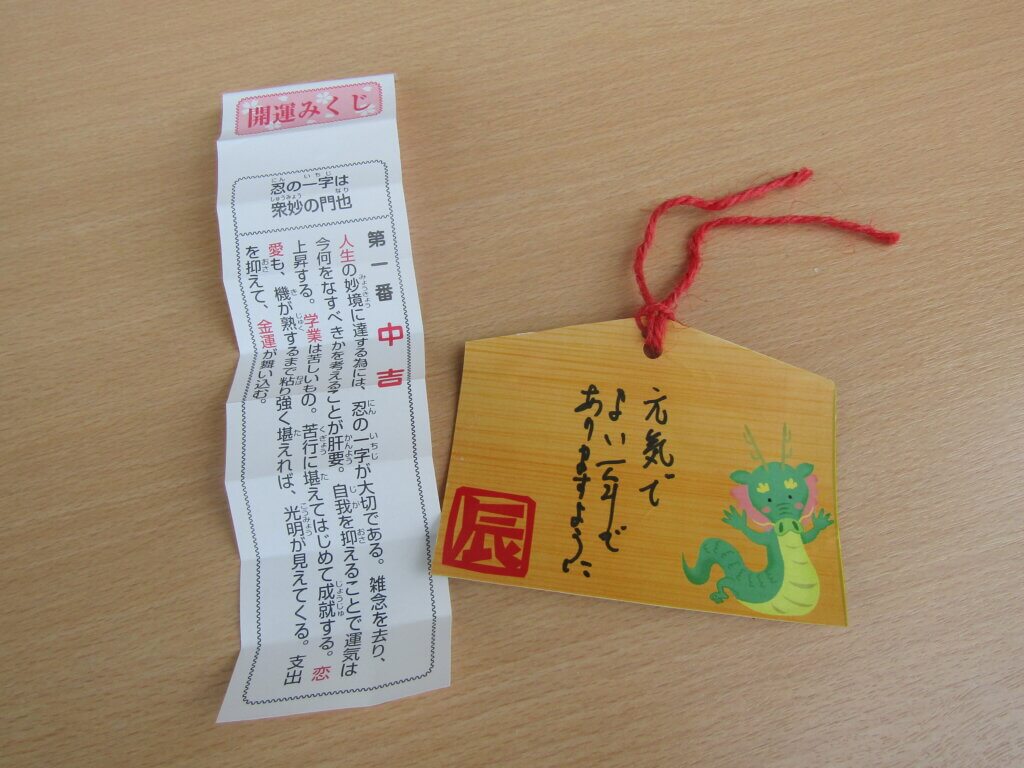 開運みくじ
忍の一字は
衆妙の門也
第一番 中吉
人生の妙境に達する為には、忍の一字が大切である。雑念を去り、
今何をなすべきかを考えることが肝要。自我を抑えることで運気は
上昇する。学業は苦しいもの。苦行に堪えてはじめて成就する。恋
愛も、機が熟するまで粘り強く堪えれば、光明が見えてくる。支出
を抑えて、金運が舞い込む。
元気で
よい一年で
ありますように
辰